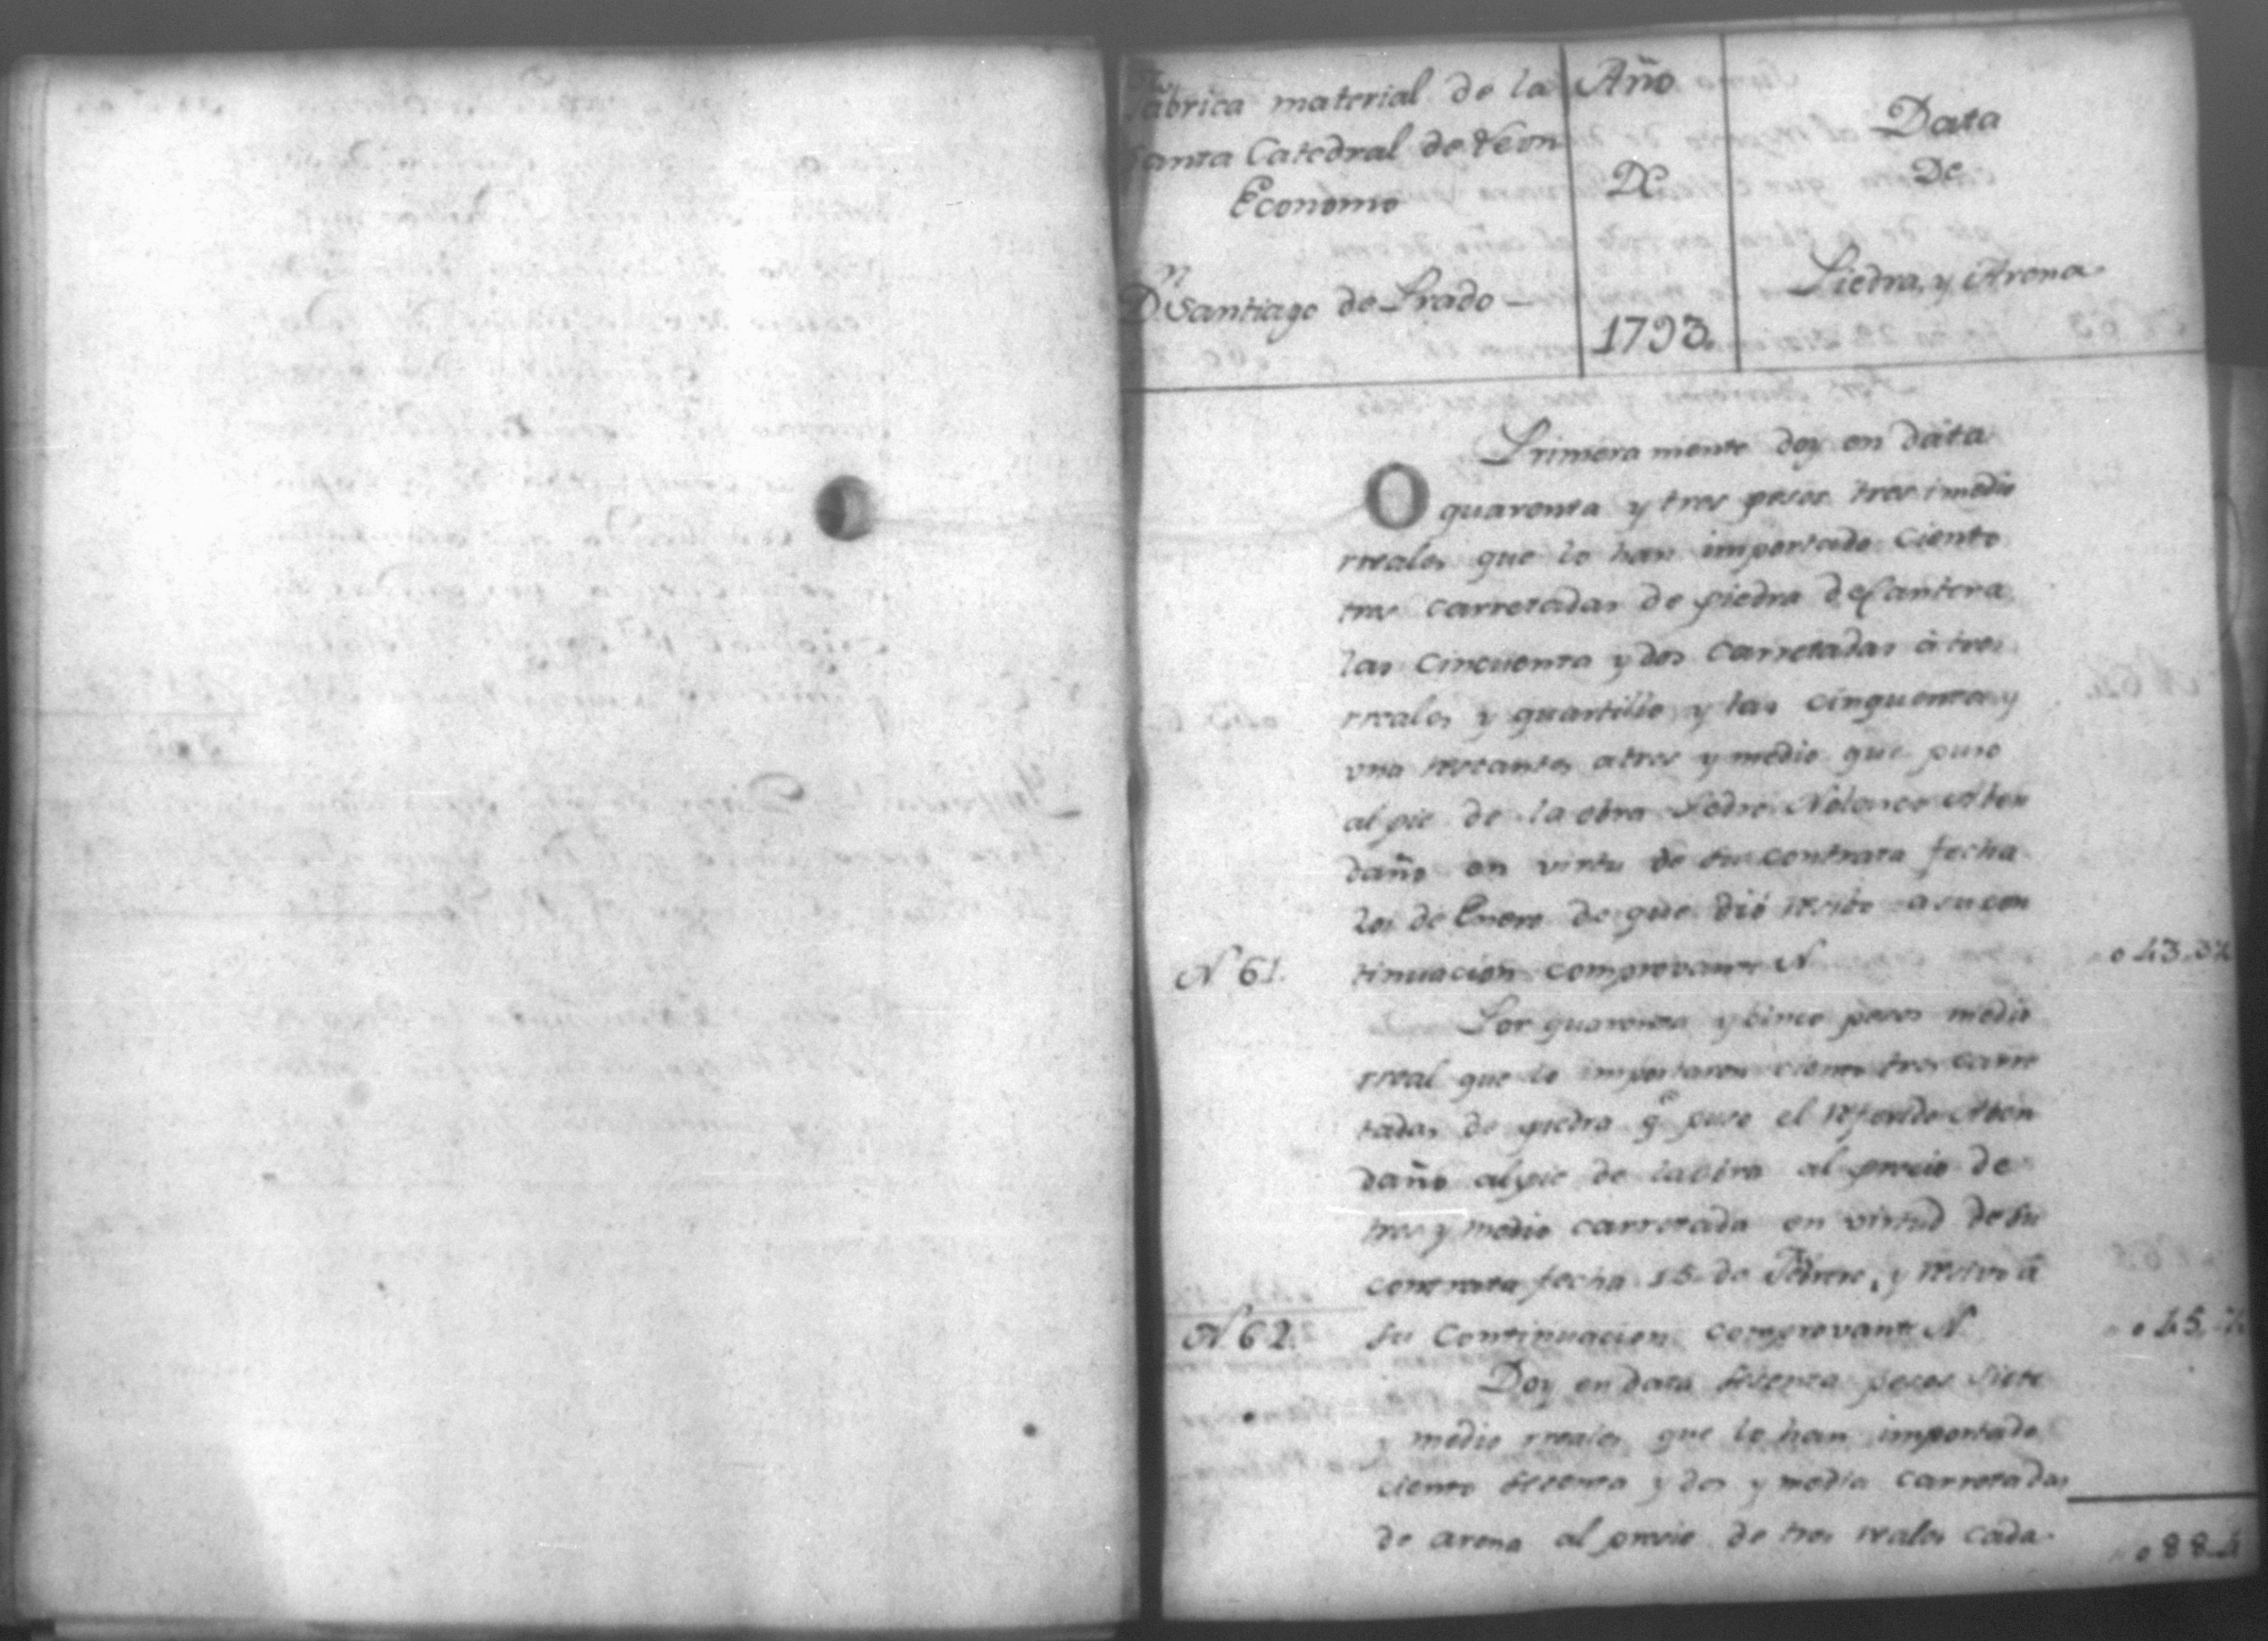 Fabrica material de la
Santa Catedral de Leon
Economo
Dn Santiago de Prado
Año
De
1793.
Data
De
Piedra, y Arena
Primera mente doy en data
quarenta y tres pesos tres i medio
rreales que lo han importado ciento
tres carretadas de piedra de Cantera
las cincuenta y dos carretadas à tres
rreales y quartillo y las cinquenta y
una restantes a tres y medio que puso
al pie de la obra Pedro Nolasco Aben
daño en virtu de su contrata fecha
de Enero de que dió recivo a su con
N 61. tinuacion comprovante N o 43.3½
Por quarenta y cinco pesos medio
rreal que lo importaron ciento tres carre
tadas de piedra qe puso el referido Aben
daño al pie de la obra al precio de
tres y medio carretada en virtud de su
contrata fecha 15 de Febrero, y recivo â
N. 62. su Continuacion comprovante N o 45. ½
Doy en data sesenta pesos siete
y medio rreales que lo han importado
ciento sesenta y dos y media carretadas
de arena al precio de tres reales cada
o 88.4